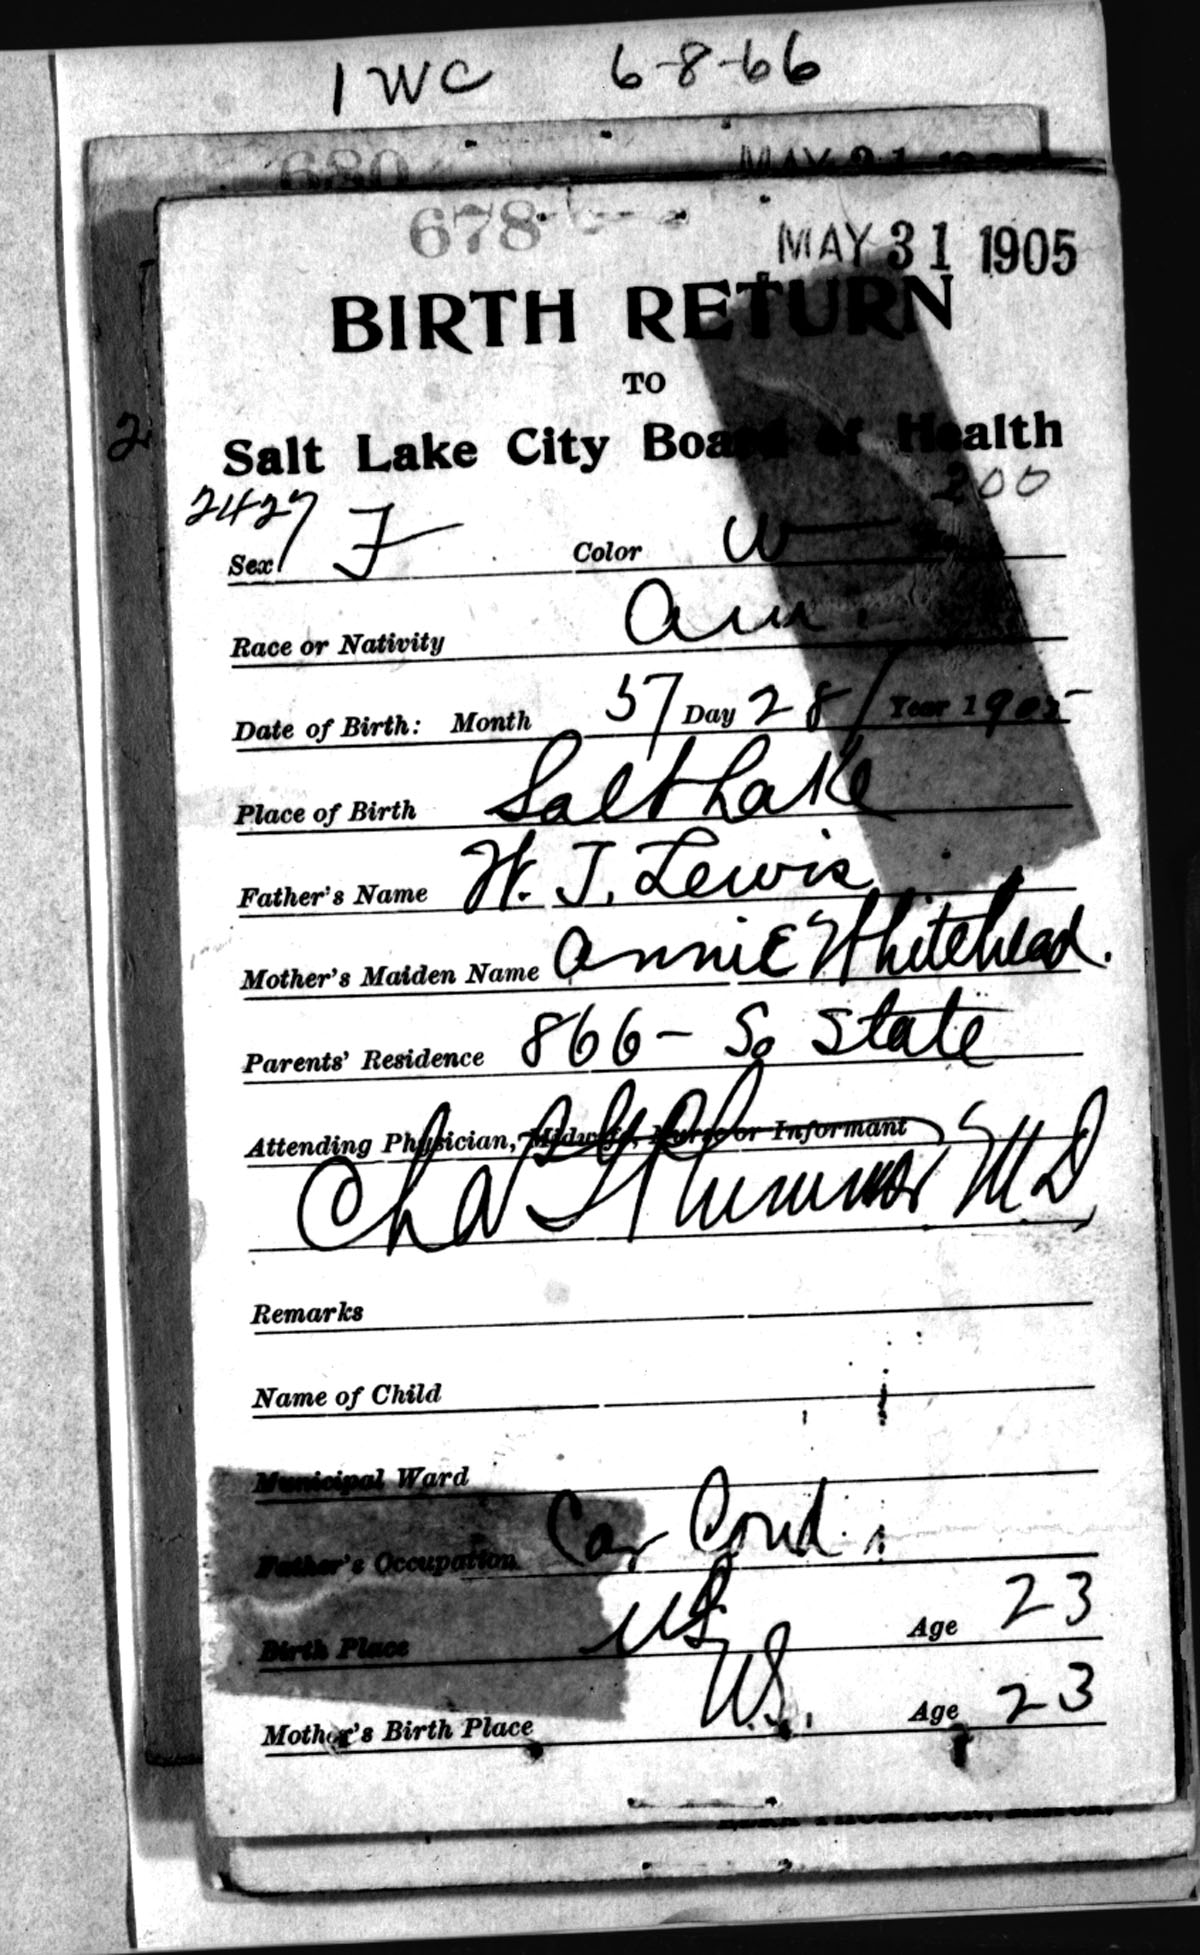 1 WC 6-8-66
680 MAY 31
678 MAY 31 1905
BIRTH RETURN
TO
Salt Lake City Board of Health
2427 200
Sex F Color W
Race or Nativity Am.
Date of Birth: Month 5/ Day 28/ Year 1905
Place of Birth Salt Lake
Father's Name W. J. Lewis
2
Mother's Maiden Name Annie Whitehead.
Parents' Residence 866 - So State
Attending Physician, Midwife, Nurse or Informant
Chas M D
Remarks
Name of Child
Municipal Ward
Father's Occupation Car Cond.
Birth Place US Age 23
Mother's Birth Place U.S. Age 23